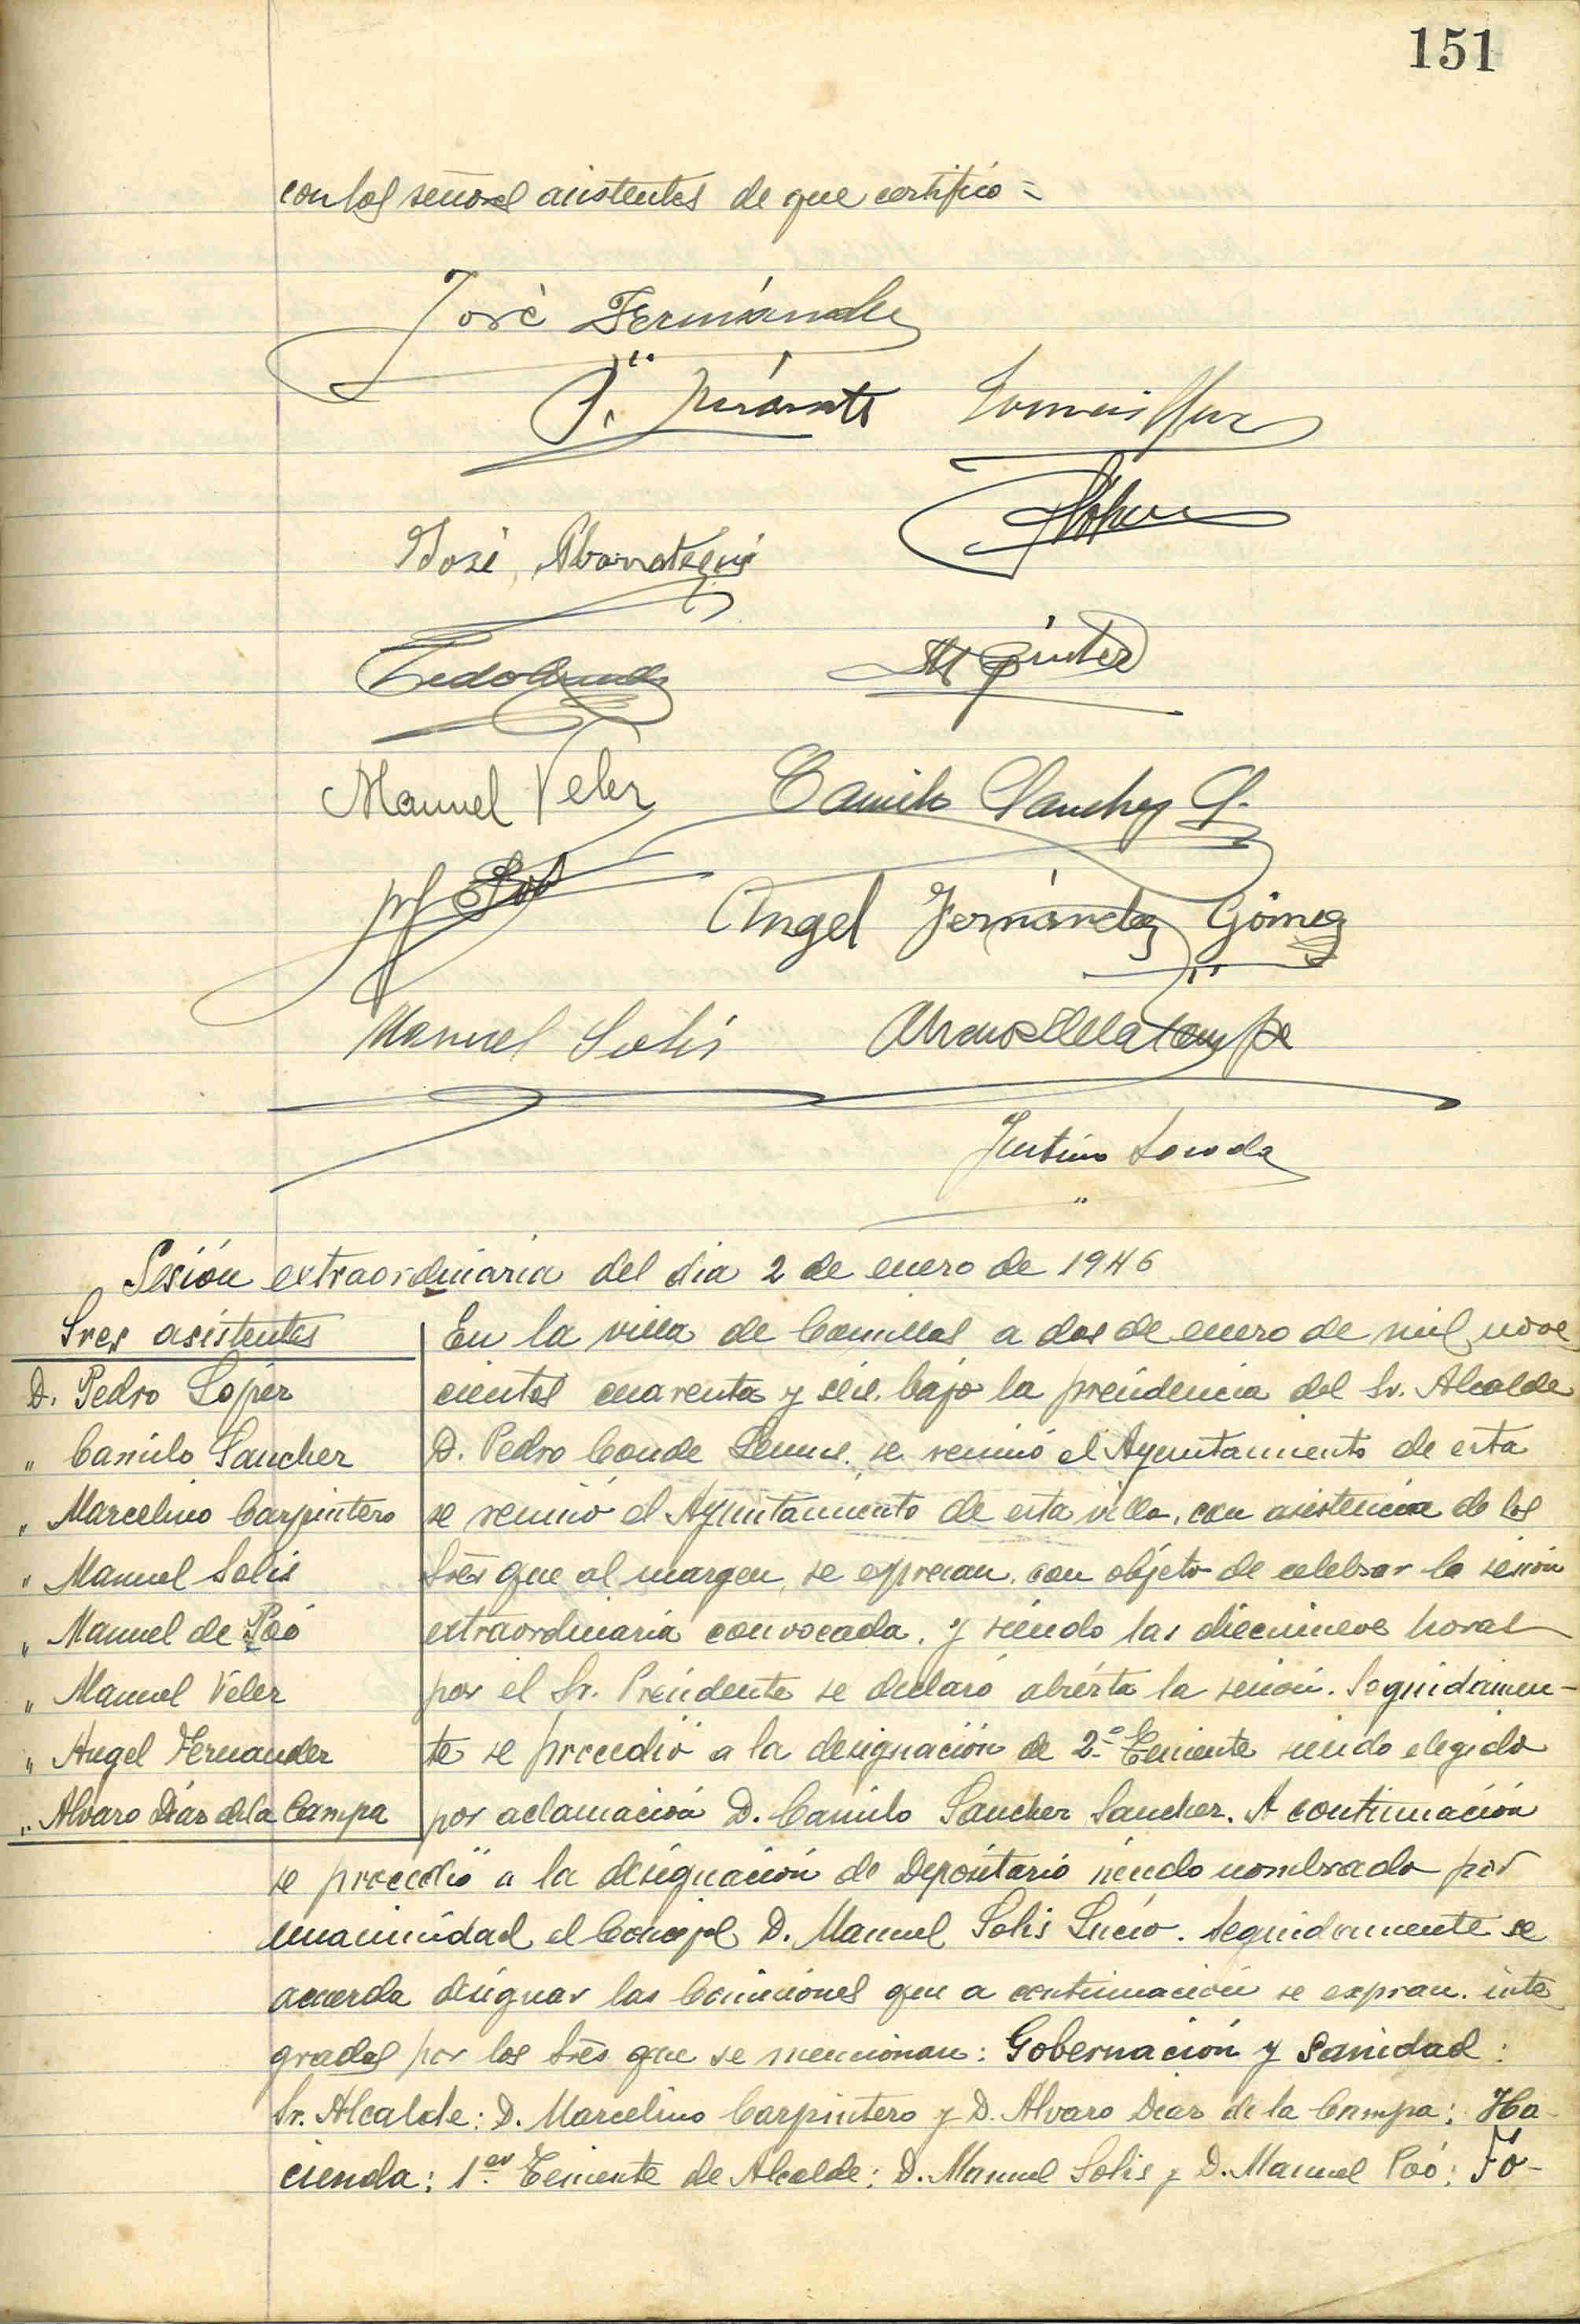 151
con los señores asistentes de que certifico =
José Fernández
José Abarrategui
Manuel Velez Camilo Sanchez S.
Angel Fernández Gómez
Manuel Solís
Sesión extraordinaria del dia 2 de enero de 1946
Sres asistentes
D. Pedro Lopez
" Camilo Sanchez
" Marcelino Carpintero
" Manuel Solis
" Manuel de Poó
" Manuel Velez
" Angel Fernandez
" Alvaro Díaz de la Campa
En la villa de Comillas a dos de enero de mil nove
cientos cuarenta y seis. bajo la presidencia del Sr. Alcalde
D. Pedro Conde se reunió el Ayuntamiento de esta
se reunió el Ayuntamiento de esta villa, con asistencia de los
Sres que al margen, se expresan, con objeto de celebrar la sesión
extraordinaria convocada, y siendo las diecinueve horas
por el Sr. Presidente se declaró abierta la sesión. Seguidamen-
te se procedió a la designación de 2º Teniente siendo elegido
por aclamación D. Camilo Sanchez Sanchez. A continuación
se procedió a la designación de Depositario siendo nombrado por
unanimidad el Concejal D. Manuel Solis Lucio. Seguidamente se
acuerda designar las Comisiones que a continuación se expran. inte
gradas por los Sres que se mencionan: Gobernación y Sanidad:
Sr. Alcalde: D. Marcelino Carpintero y D. Alvaro Diaz de la Campa; Ha-
cienda: 1er Teniente de Alcalde: D. Manuel Solis y D. Manuel Poó: Fo-